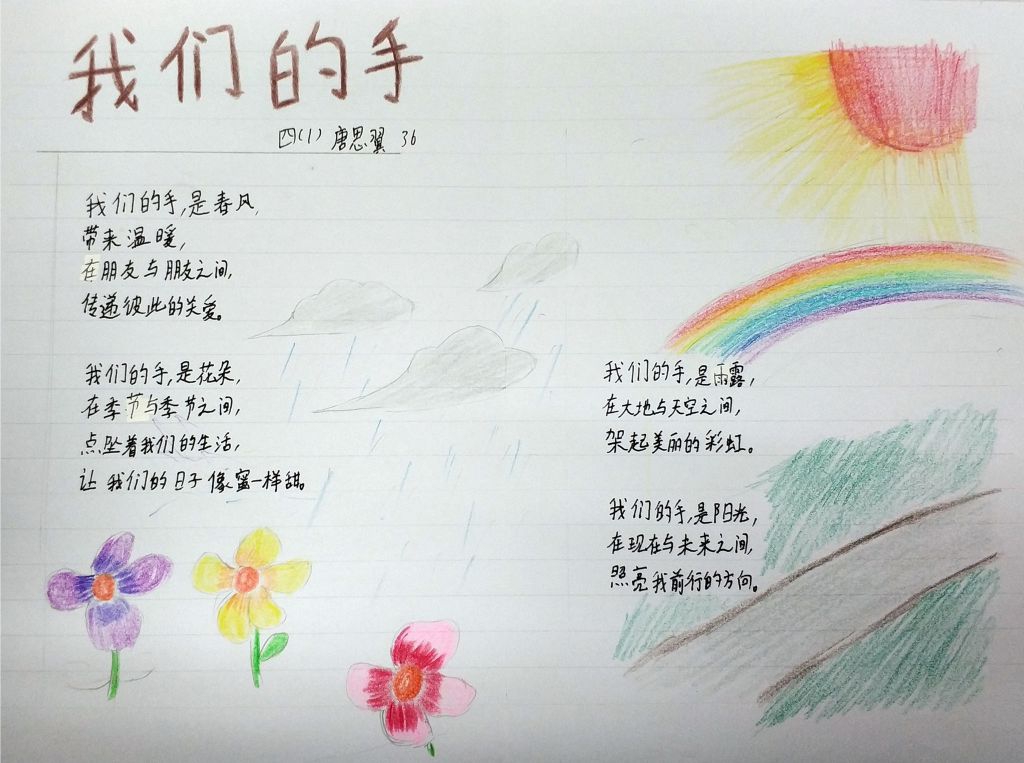 我们的手
四(1) 唐思翼 36
我们的手,是春风,
带来温暖,
在朋友与朋友之间,
传递彼此的关爱。
我们的手,是花朵,
在季节与季节之间,
点坠着我们的生活,
让我们的日子像蜜一样甜。
我们的手,是雨露,
在大地与天空之间,
架起美丽的彩虹。
我们的手,是阳光,
在现在与未来之间,
照亮我前行的方向。